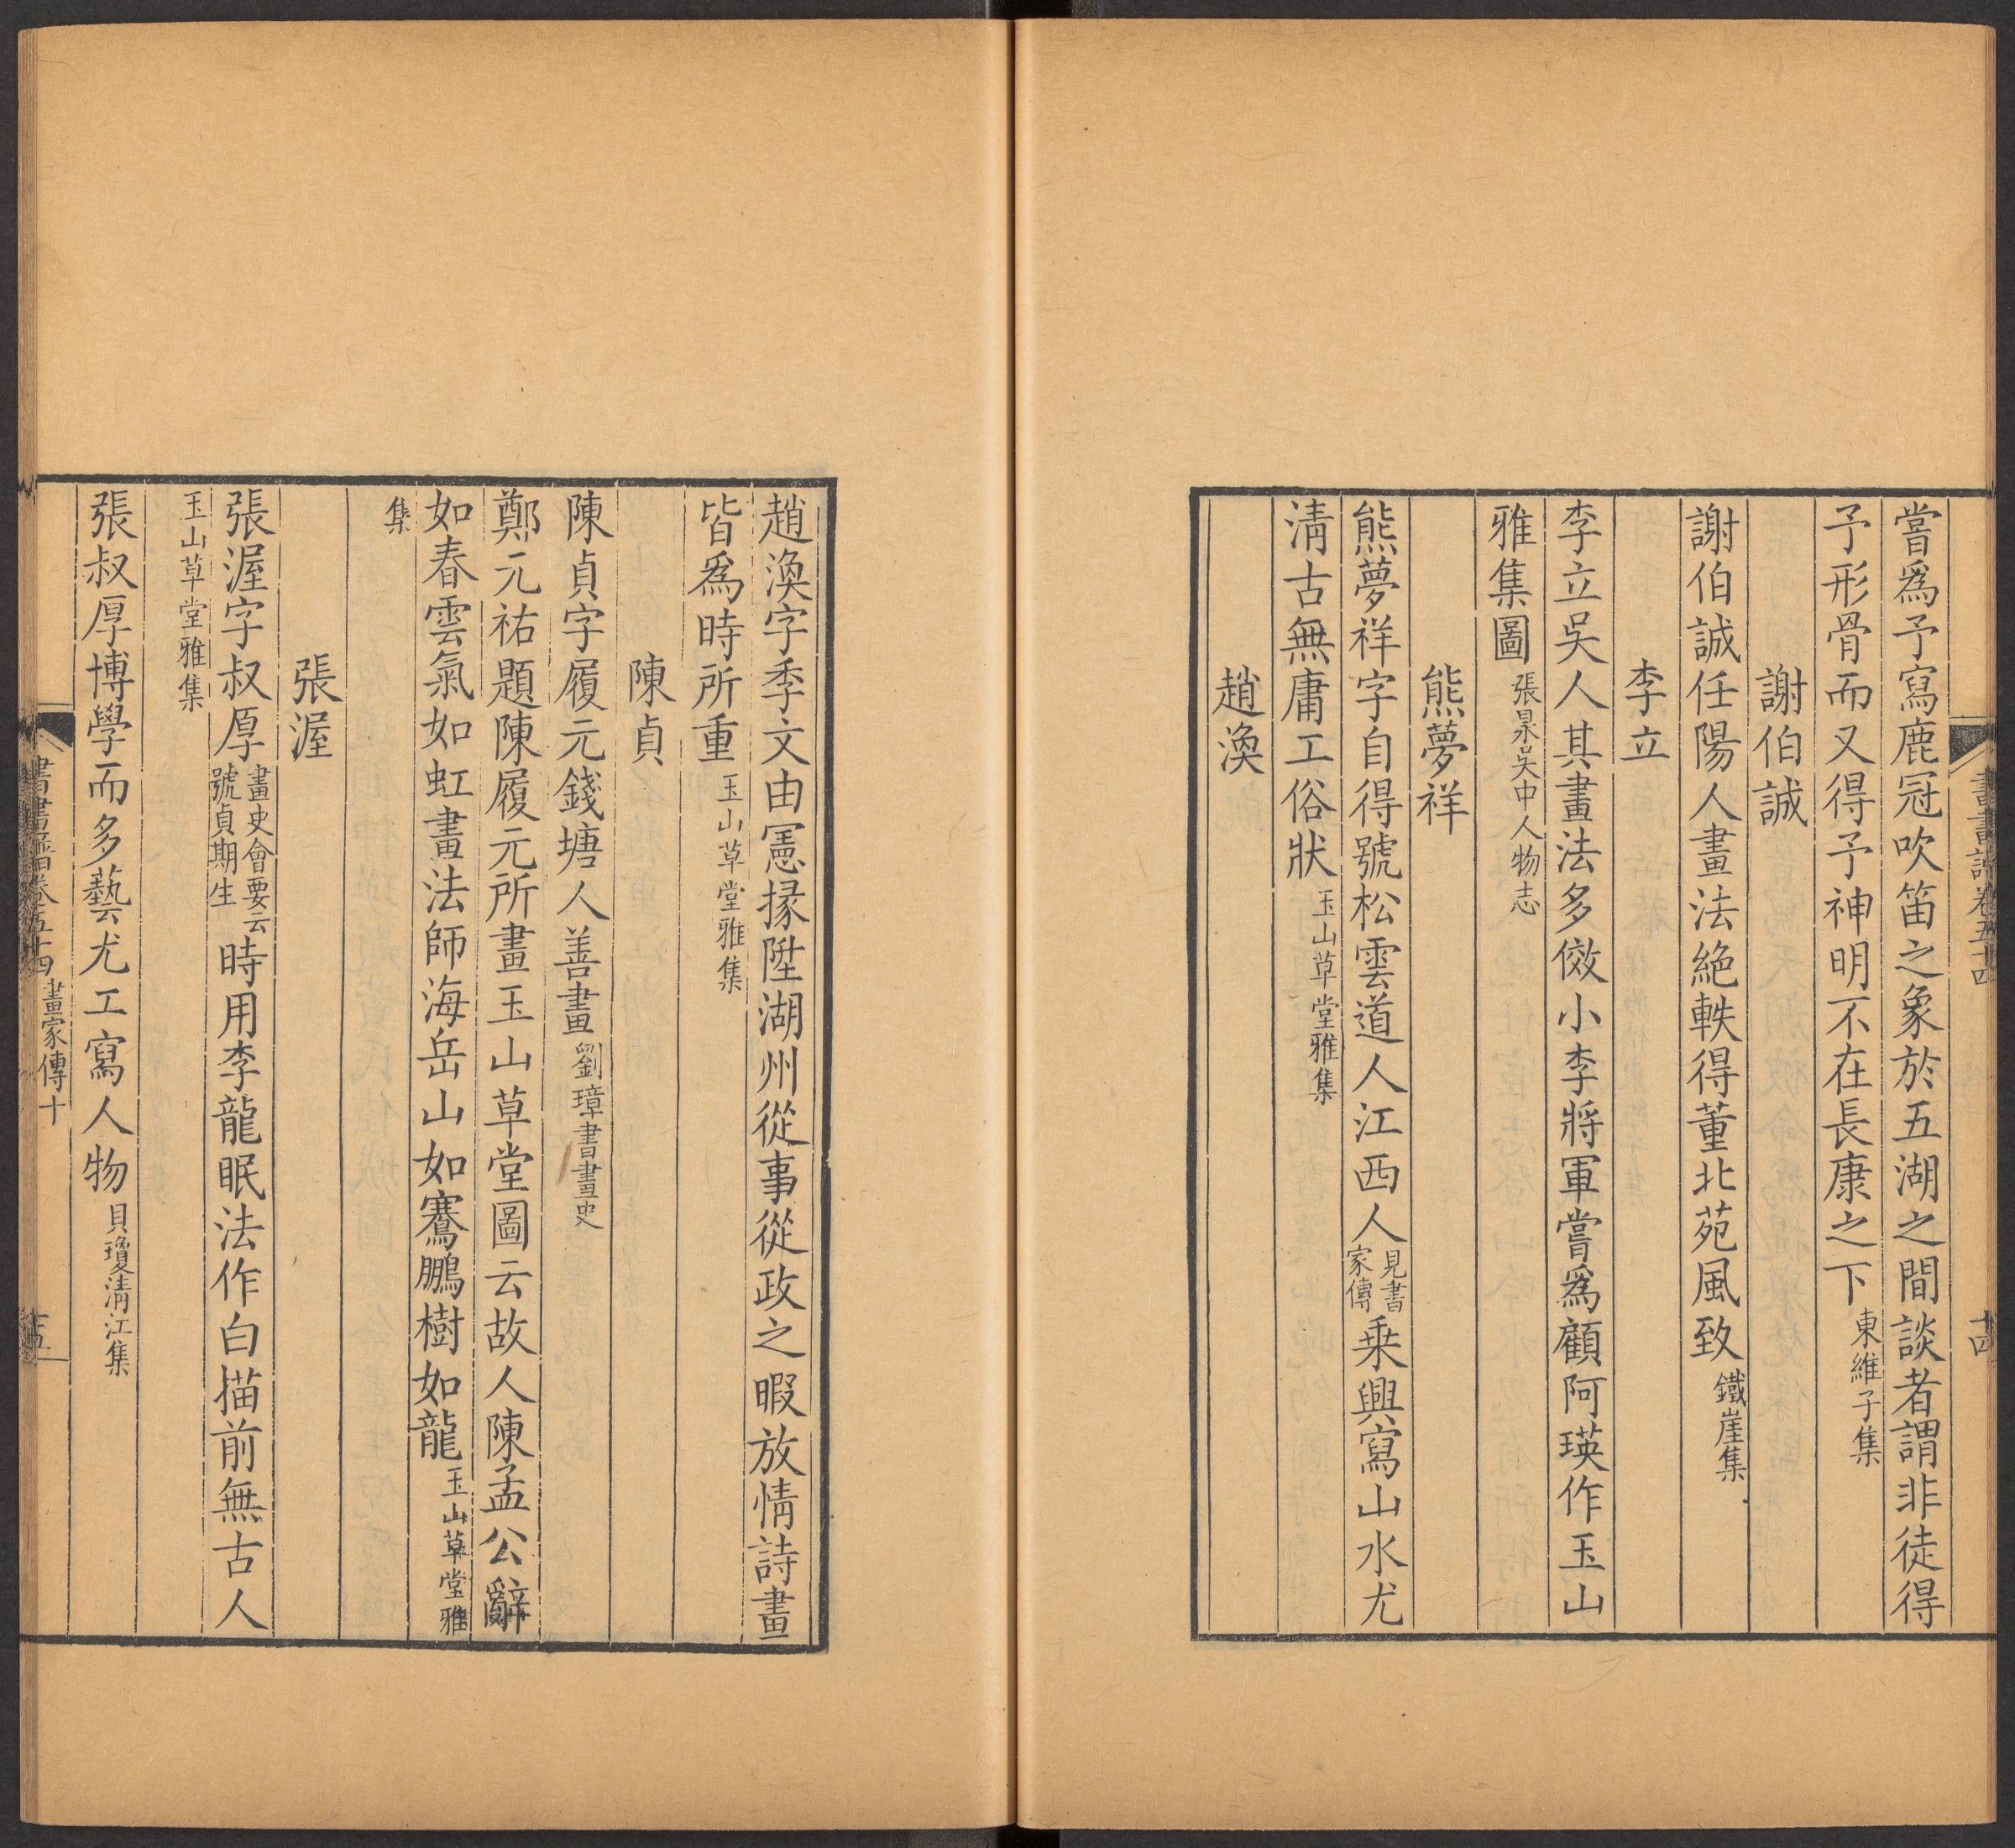 嘗爲予寫鹿冠吹笛之象於五湖之間談者謂非徒得
予形骨而又得予神明不在長康之下東維子集
謝伯誠
謝伯誠任陽人畫法絕軼得董北苑風致鐵崖集
李立
李立吳人其畫法多倣小李將軍嘗爲顧阿瑛作玉山
雅集圖張㫤吳中人物志
熊夢祥
熊夢祥字自得號松雲道人江西人見書家傳乗興寫山水尤
淸古無庸工俗狀玉山草堂雅集
趙渙
趙渙字季文由憲掾陞湖州從事從政之暇放情詩畫
皆爲時所重玉山草堂雅集
陳貞
陳貞字履元錢塘人善畫劉璋書畫史
鄭元祐題陳履元所畫玉山草堂圖云故人陳孟公辭
如春雲氣如虹畫法師海岳山如騫鵬樹如龍玉山草堂雅
集
張渥
張渥字叔厚畫史會要云號貞期生時用李龍眠法作白描前無古人
玉山草堂雅集
張叔厚博學而多藝尤工寫人物貝瓊淸江集
書畫譜卷五十四 畫家傳十
十五